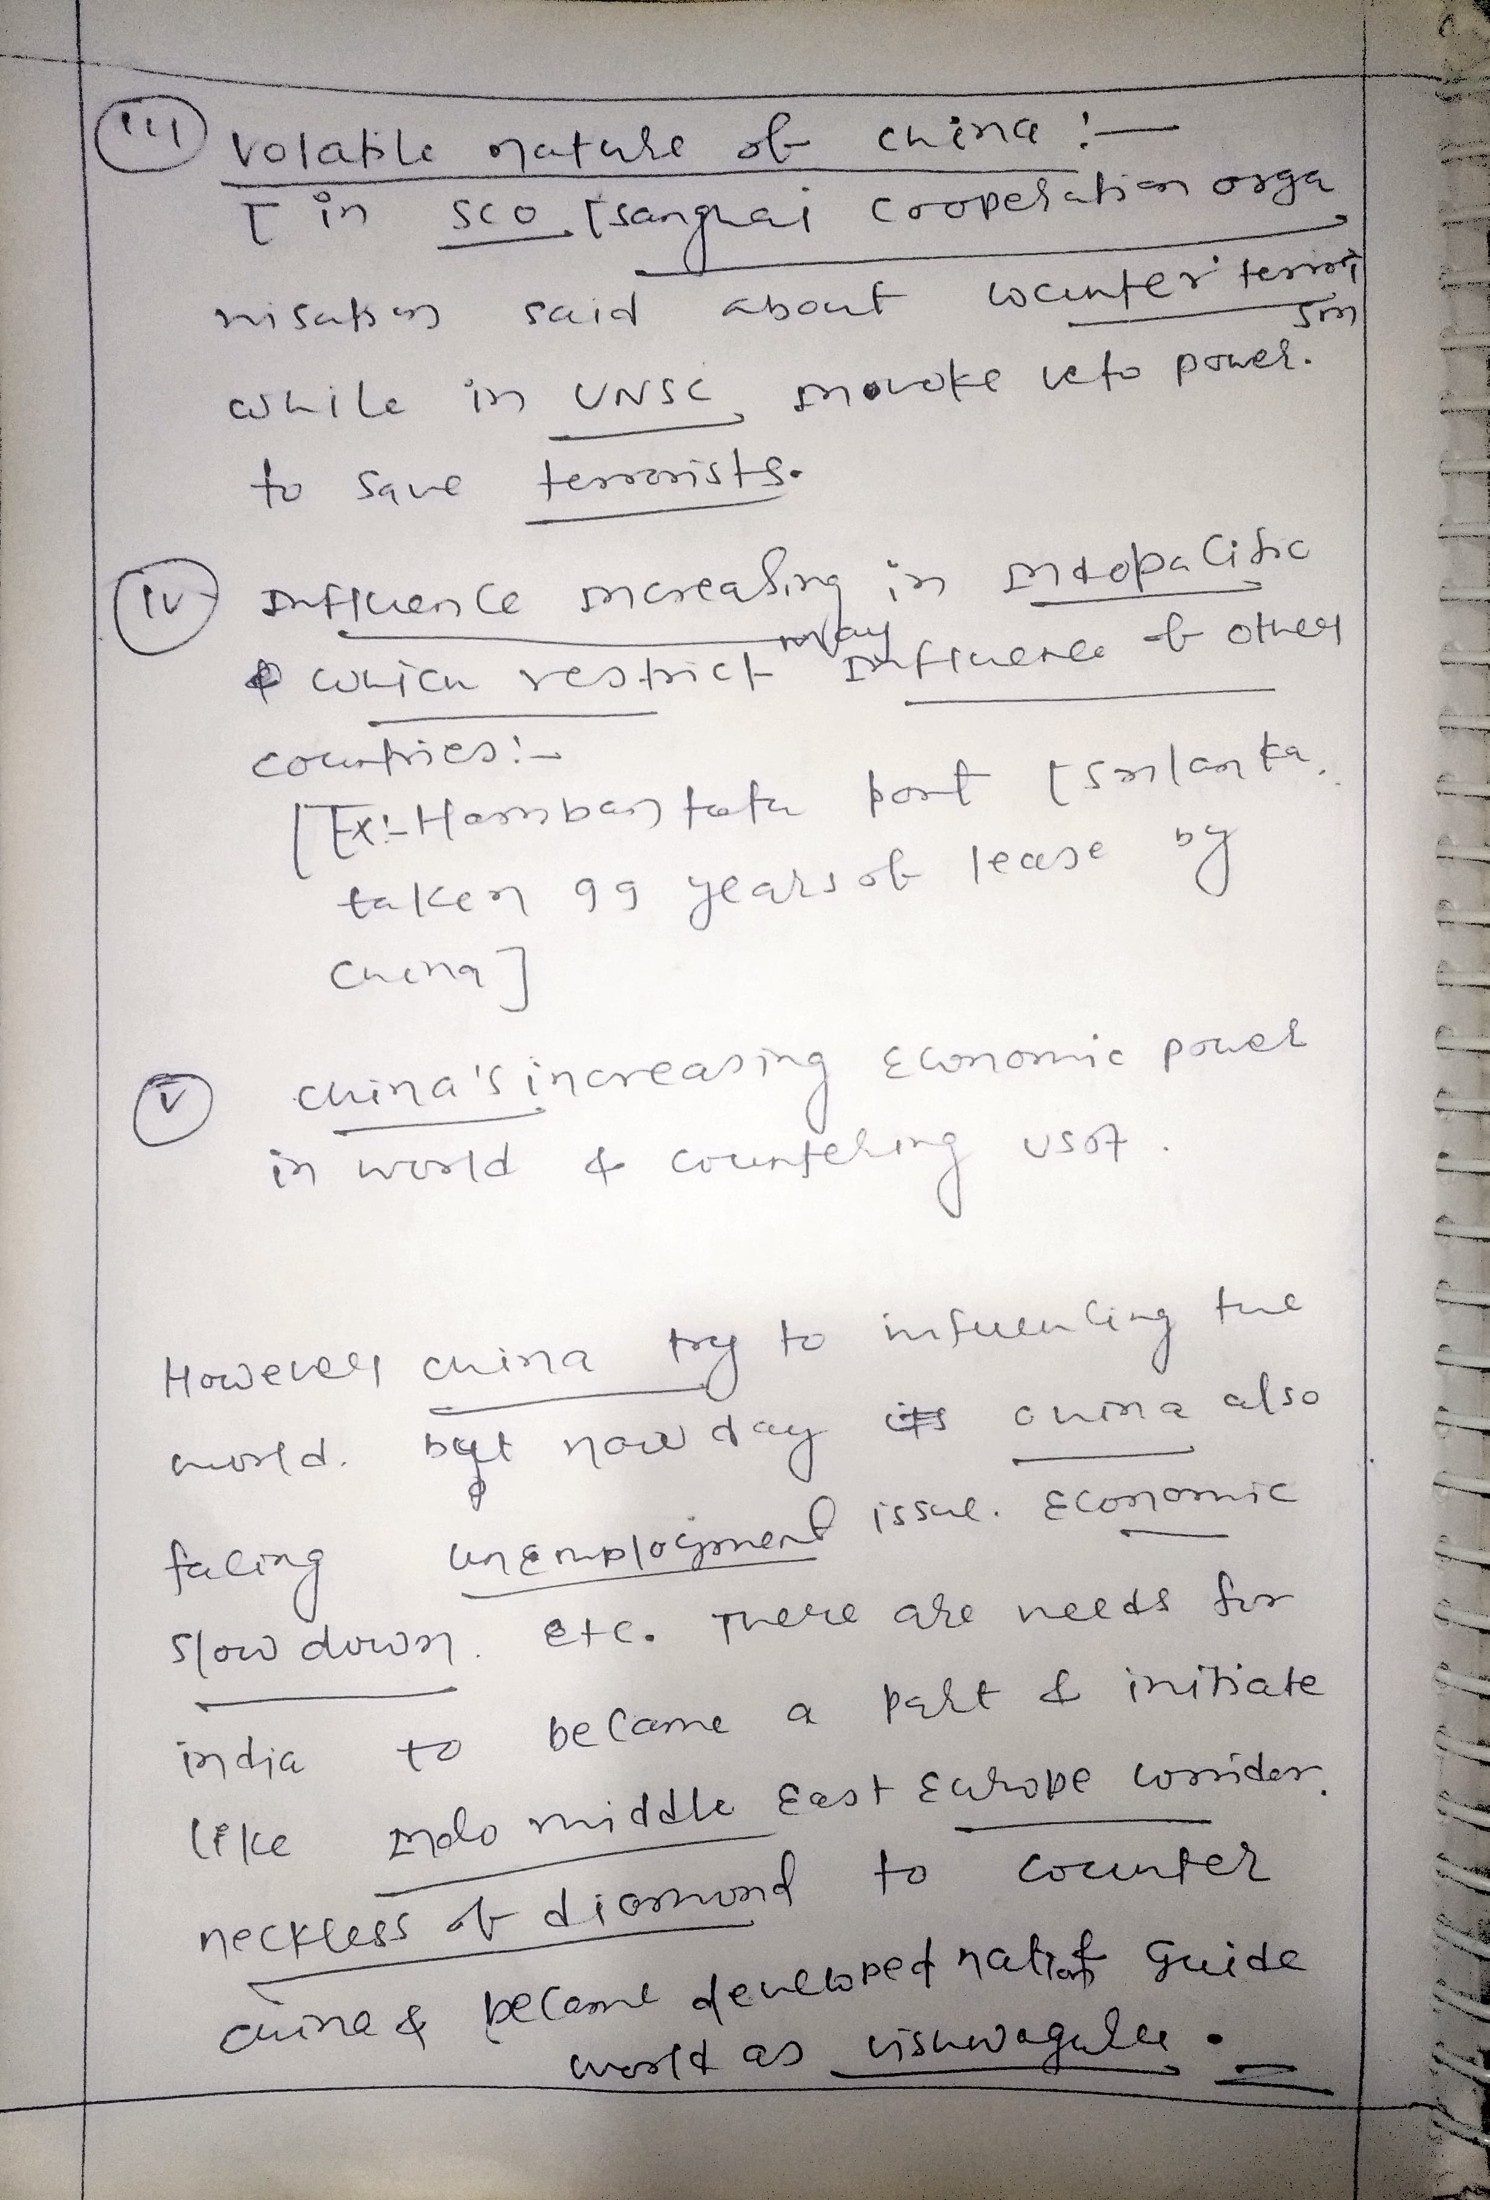 (iii) volatile nature of china :-
[ in SCO [sanghai cooperation orga
nisation said about counter terrori
sm
while in UNSC, invoke veto power.
to save terrorists.
(iv) Influence increasing in Indopacific
& which restrict may Influence of other
countries:-
[Ex:- Hambantota port [Srilanka,
taken 99 years of lease by
china]
(v) china's increasing economic power
in world & countering USA.
However china try to influencing the
world. but now day its china also
facing unemployment issue. Economic
slow down. etc. There are needs for
india to became a part & initiate
like Indo middle East Europe corridor.
neckless of diamond to counter
china & became developed nation guide
world as vishwaguru.